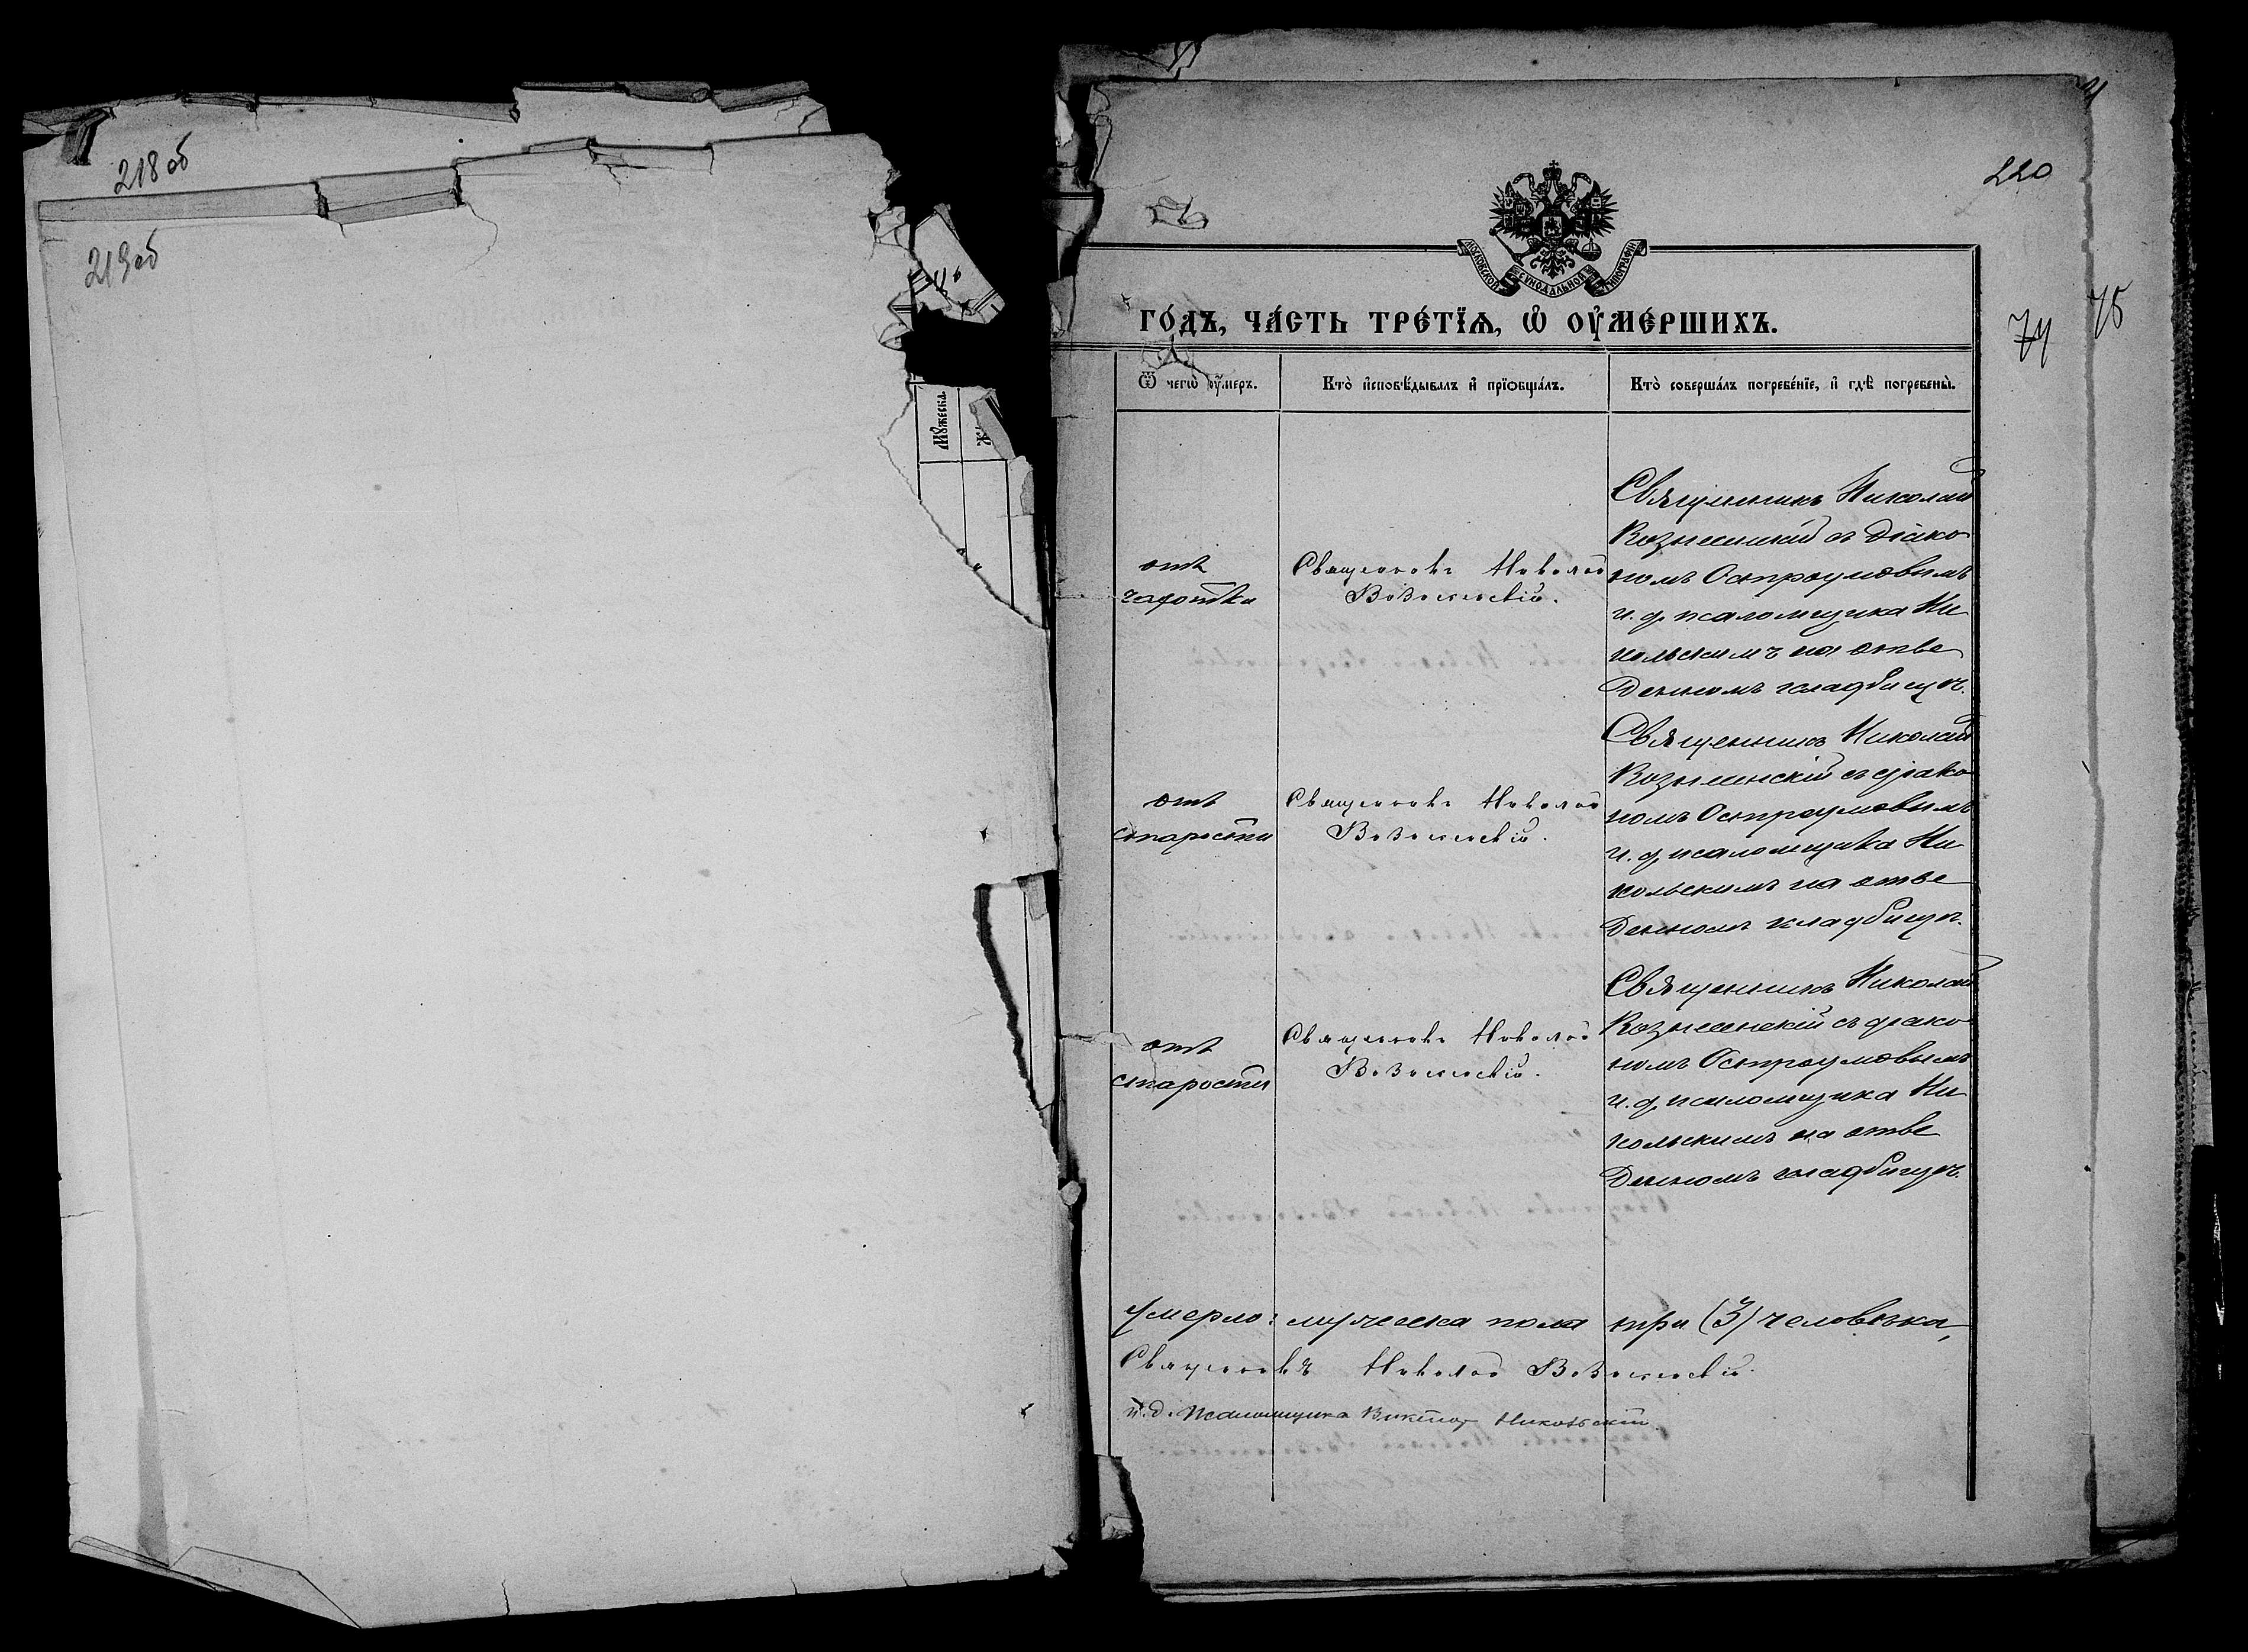 218 об
219 об
Мꙋжеска.
220
74
75
МОСКОВСКОЙ СѴНОДАЛЬНОЙ ТИПОГРАФІИ
ГО́ДЪ, ЧА́СТЬ ТРЕ́ТЇѦ, Ѡ҆ ОУ҆МЕ́РШИХЪ.
Ѿ чегѡ̀ оу҆́меръ.
Кто̀ и҆сповѣ́дывалъ и҆ прїѡбща́лъ.
Кто̀ соверша́лъ погребе́нїе, и҆ гдѣ̀ погребены̀.
отъ
чахотки
Священникъ Николай
Вознесенскій.
Священникъ Николай
Вознесенскій съ діако
номъ Остроумовымъ
и. д. псаломщика Ни
кольскимъ на отве
денномъ кладбищѣ.
отъ
старости
Священникъ Николай
Вознесенскій.
Священникъ Николай
Вознесенскій съ діако
номъ Остроумовымъ
и. д. псаломщика Ни
кольскимъ на отве
денномъ кладбищѣ.
отъ
старости
Священникъ Николай
Вознесенскій.
Священникъ Николай
Вознесенскій съ діако
номъ Остроумовымъ
и. д. псаломщика Ни
кольскимъ на отве
денномъ кладбищѣ.
Умерло: мужеска пола три (3) человѣка,
Священникъ Николай Вознесенскій.
и. д. Псаломщика Викторъ Никольскій.